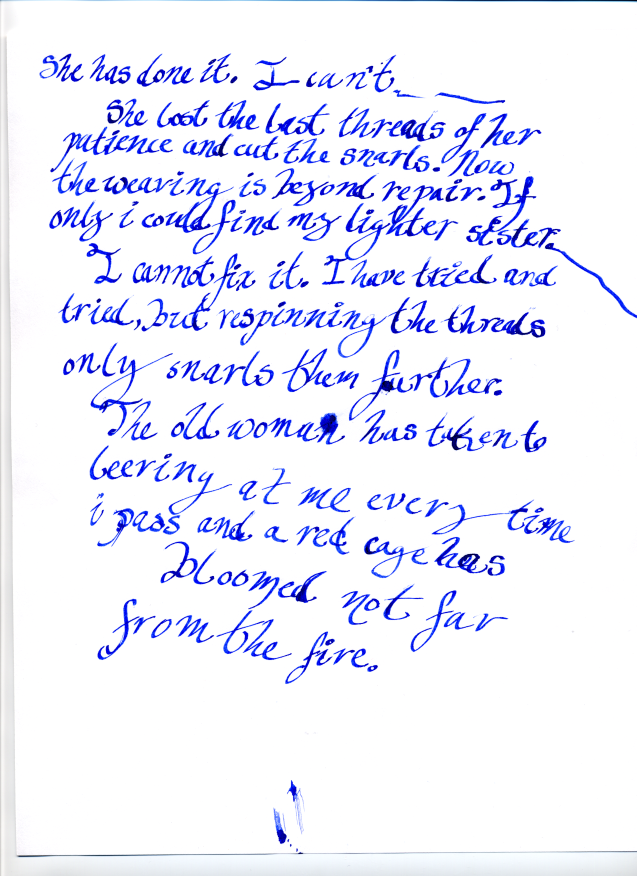 She has done it. I can't
She lost the last threads of her
patience and cut the snarls. Now
the weaving is beyond repair. If
only i could find my lighter sister.
I cannot fix it. I have tried and
tried, but respinning the threads
only snarls them further.
The old woman has taken to
leering at me every time
i pass and a red cage has
bloomed not far
from the fire.